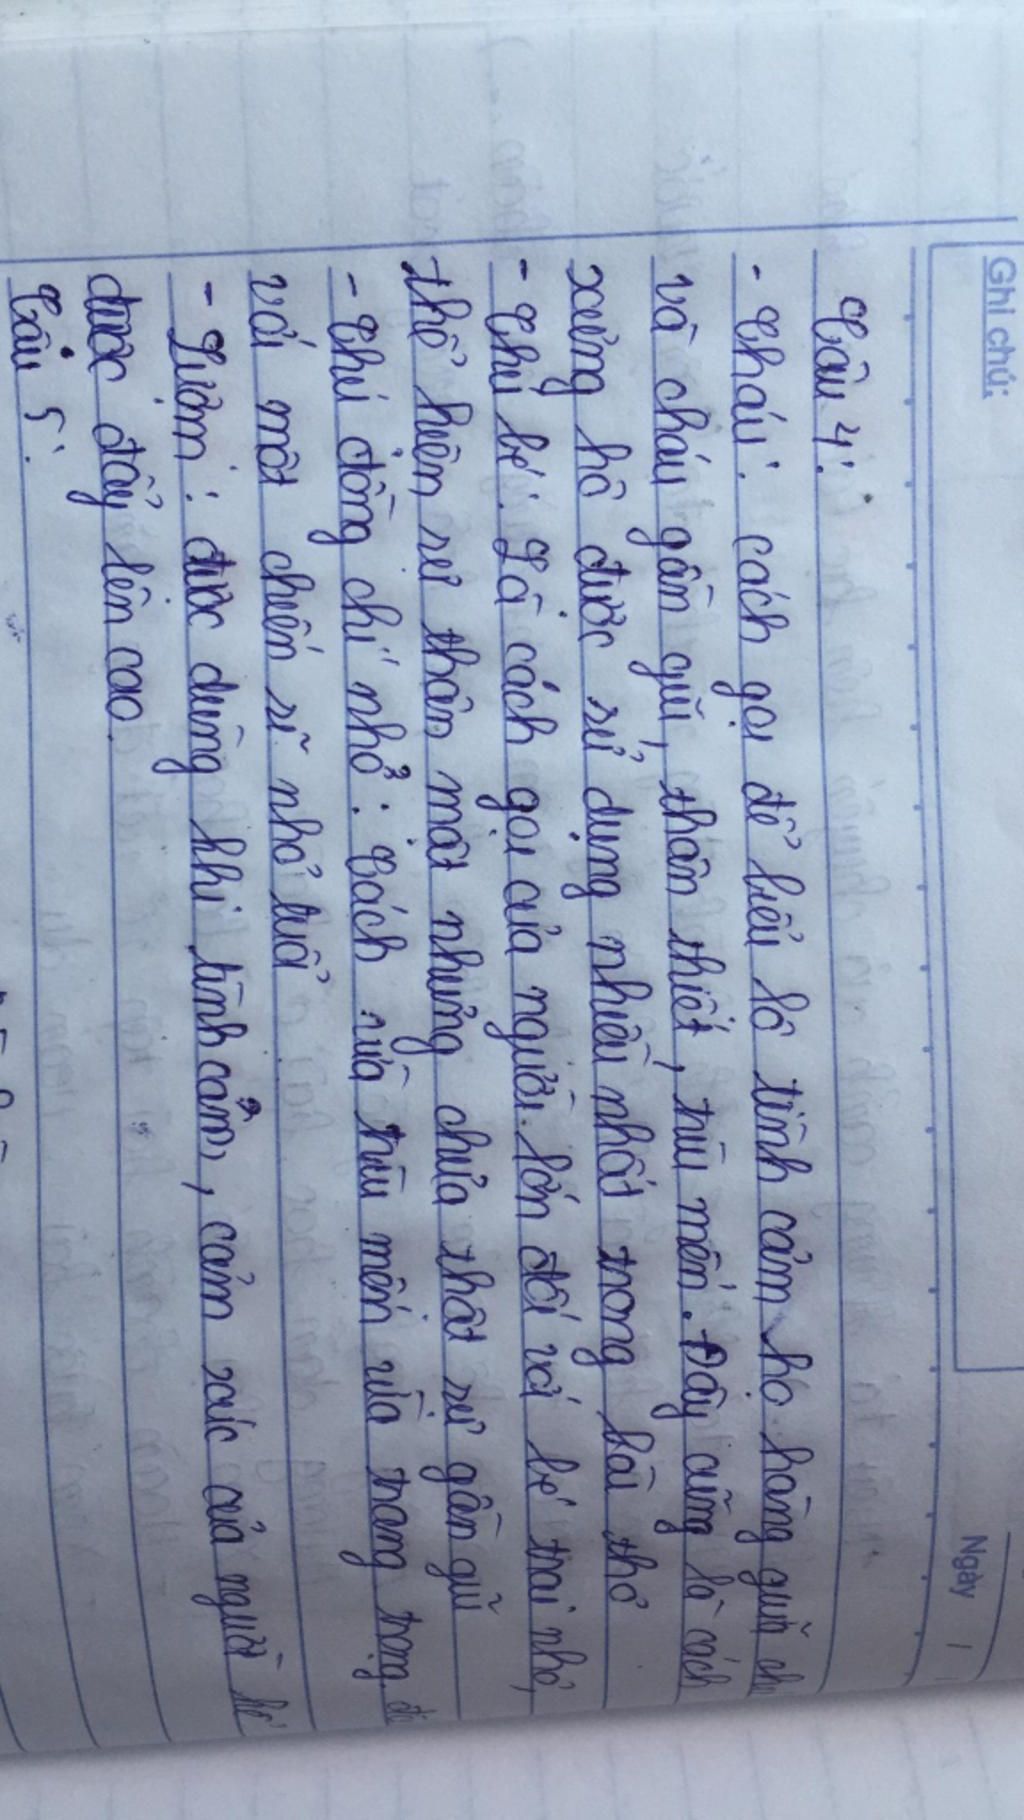 Ghi chú:
Ngày
Câu 4:
- Cháu: cách gọi để biểu lộ tình cảm họ hàng giữa
và cháu gần gũi, thân thiết, trìu mến. Đây cũng là cách
xưng hô được sử dụng nhiều nhất trong bài thơ
- Chú bé: Là cách gọi của người lớn đối với bé trai nhỏ,
thể hiện sự thân mật nhưng chưa thật sự gần gũi
- Chú đồng chí nhỏ: Cách vừa trìu mến vừa trang trọng
với một chiến sĩ nhỏ tuổi
- Lượm: được dùng khi tình cảm, cảm xúc của người
được đẩy lên cao.
Câu 5: